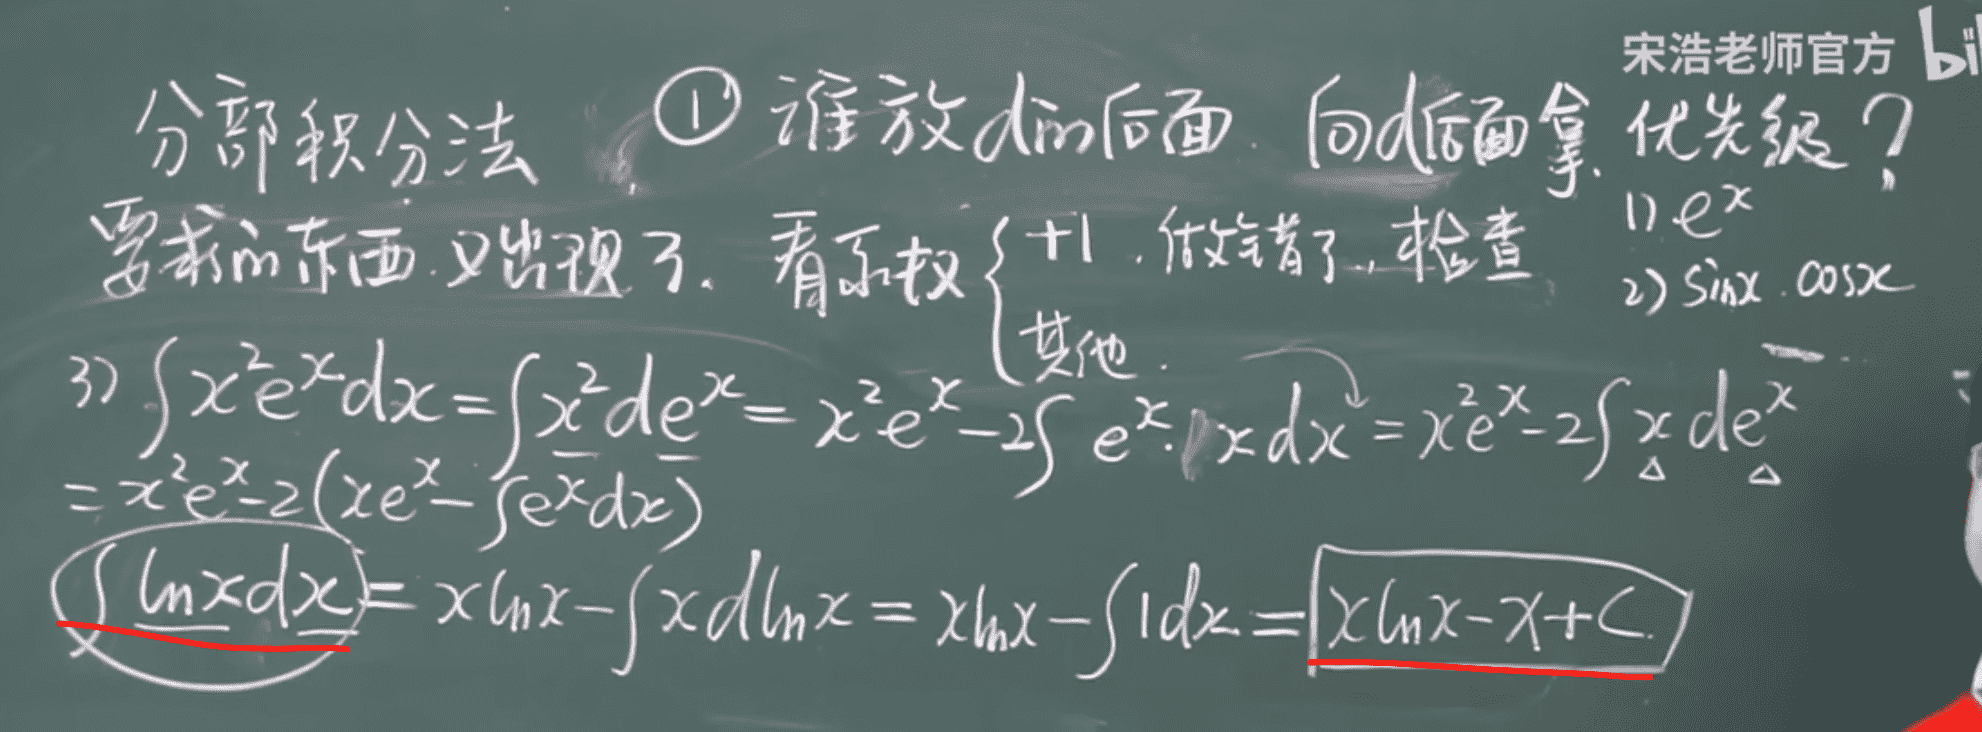 宋浩老师官方 bi
分部积分法 ① 谁放d的后面 向d后面拿. 优先级?
1) eˣ
要求的东西.又出现了. 看系数 { +1. 做错了, 检查
2) sinx. cosx
其他.
3) ∫x²eˣdx = ∫x²deˣ = x²eˣ-2∫eˣ·xdx = x²eˣ-2∫xdeˣ
= x²eˣ-2(xeˣ-∫eˣdx)
∫lnxdx = xlnx-∫xdlnx = xlnx-∫1dx = xlnx-x+C.